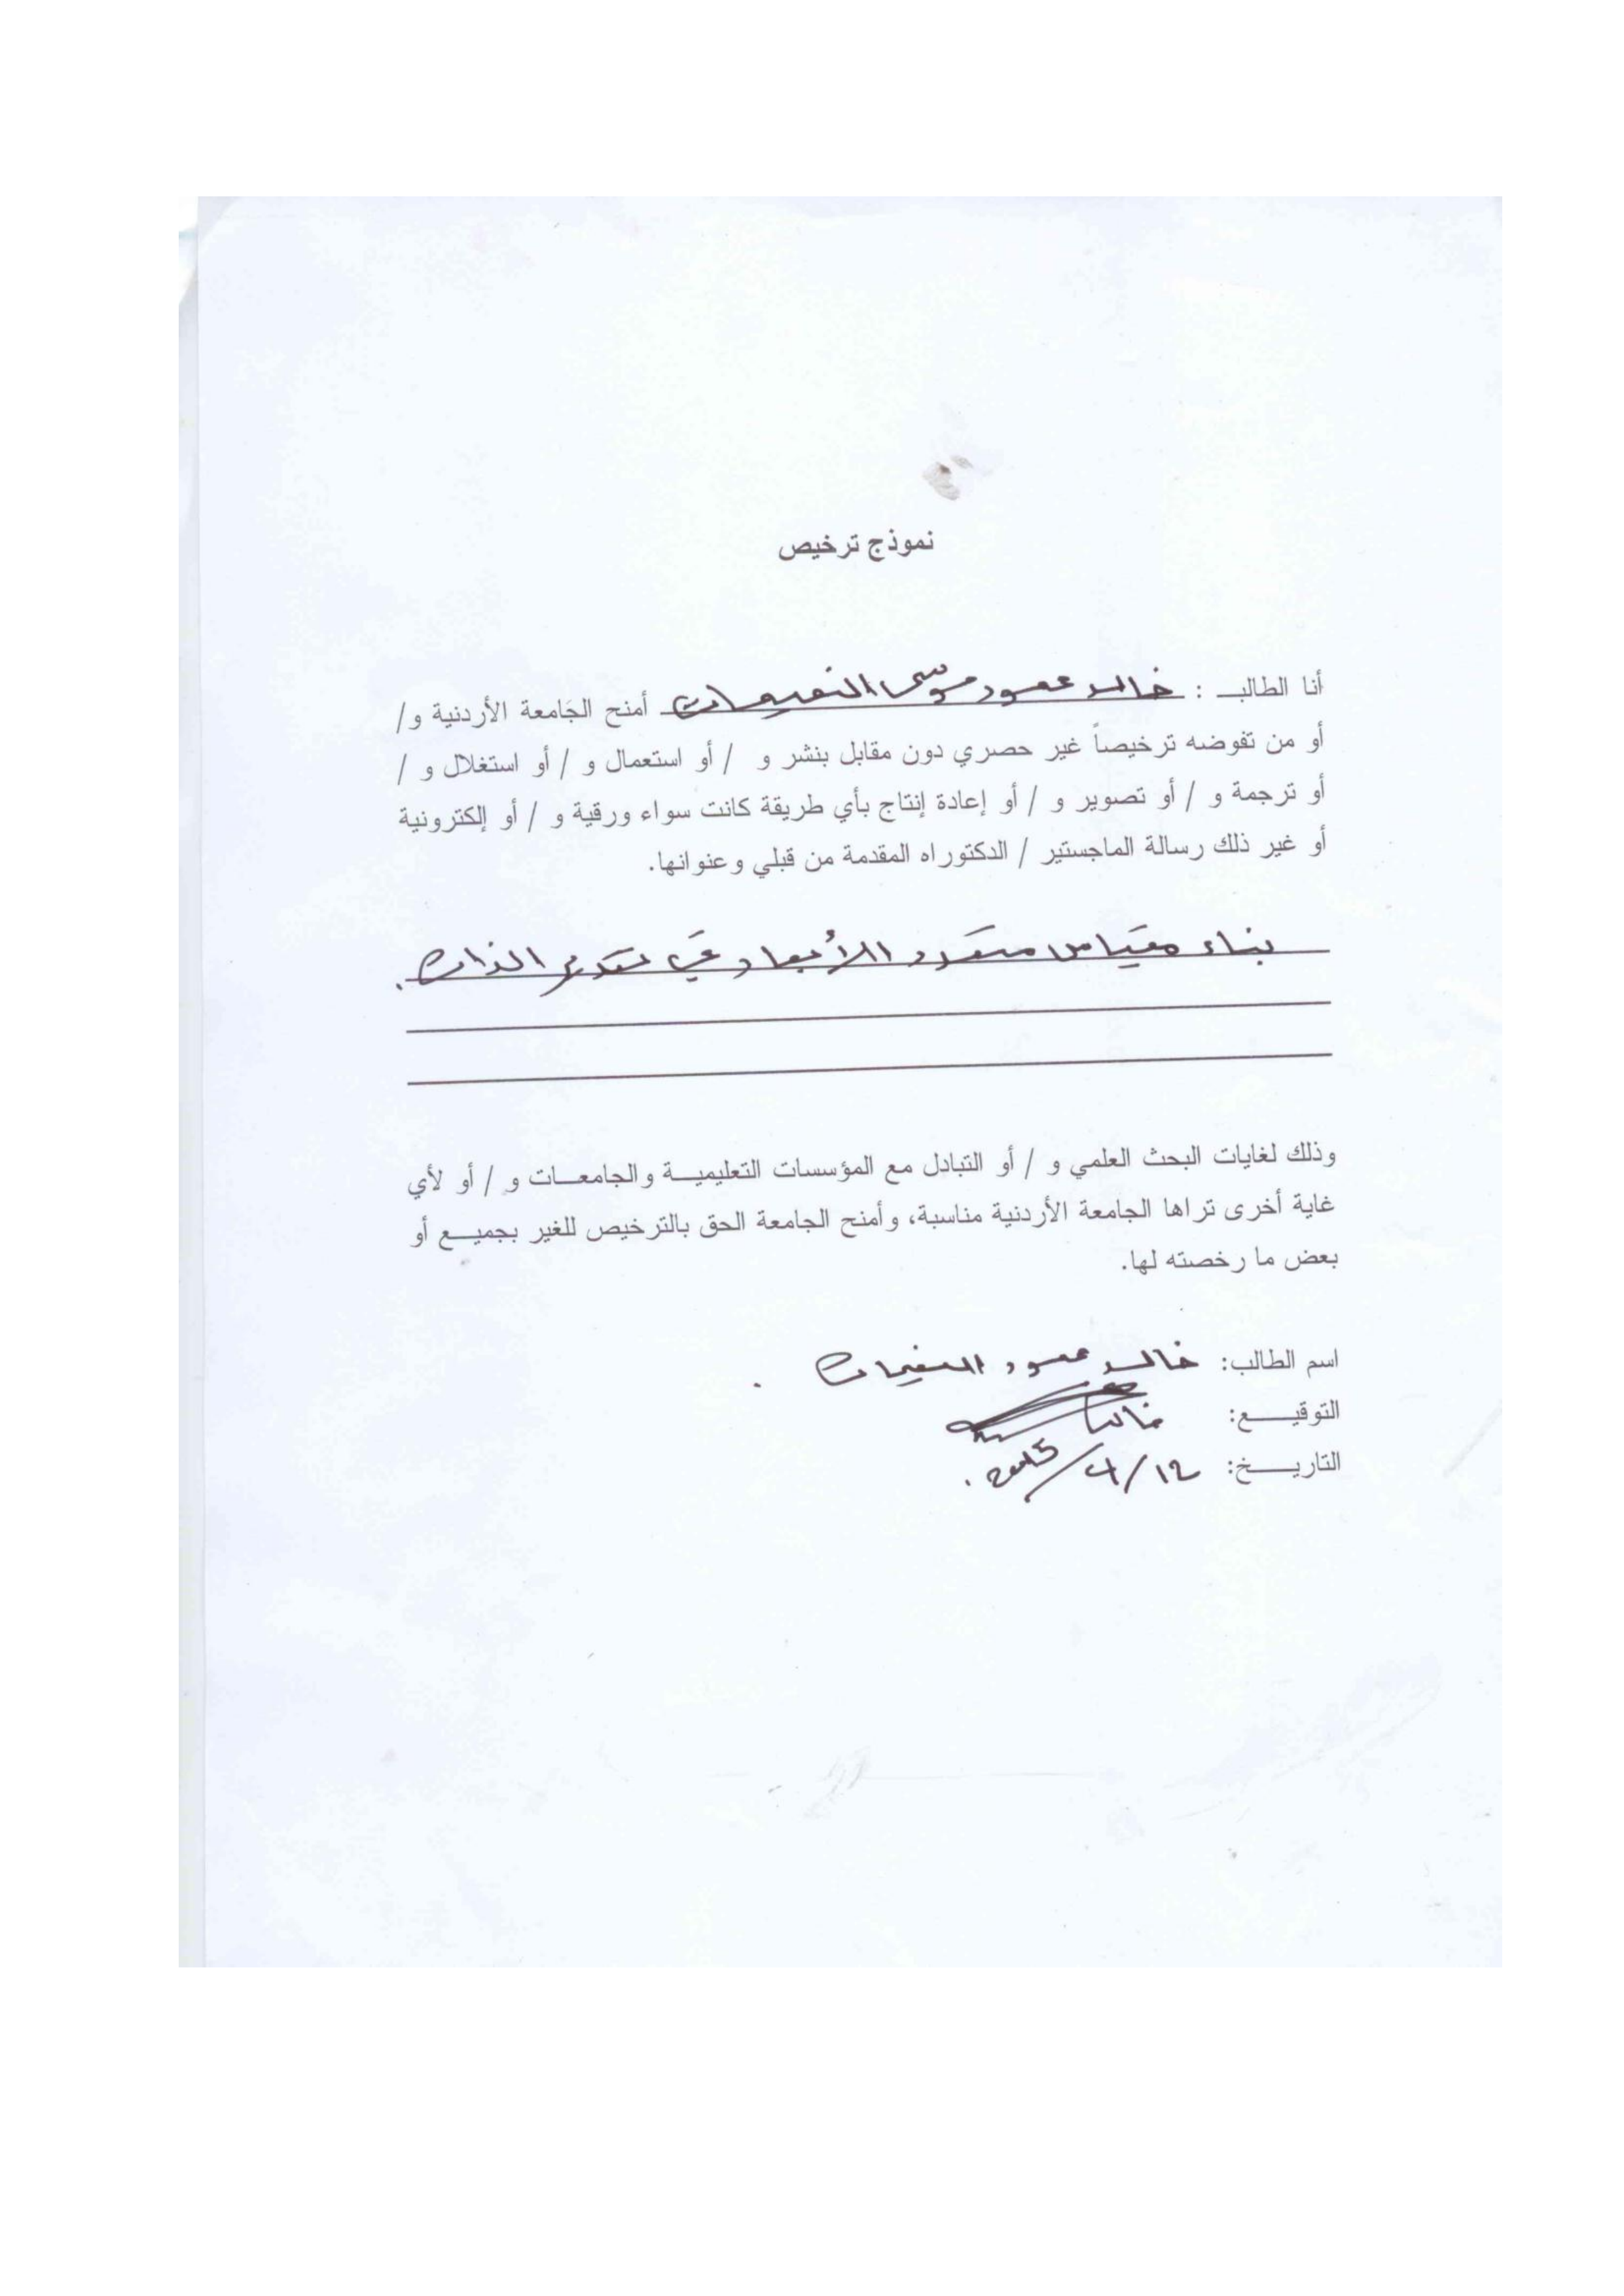 نموذج ترخيص
أنا الطالب : خالد محمود موسى النعيمات أمنح الجامعة الأردنية و/
أو من تفوضه ترخيصاً غير حصري دون مقابل بنشر و / أو استعمال و / أو استغلال و /
أو ترجمة و / أو تصوير و / أو إعادة إنتاج بأي طريقة كانت سواء ورقية و / أو إلكترونية
أو غير ذلك رسالة الماجستير / الدكتوراه المقدمة من قبلي وعنوانها.
بناء مقياس متعدد الأبعاد في تقدير الذات.
وذلك لغايات البحث العلمي و / أو التبادل مع المؤسسات التعليمية والجامعات و / أو لأي
غاية أخرى تراها الجامعة الأردنية مناسبة، وأمنح الجامعة الحق بالترخيص للغير بجميع أو
بعض ما رخصته لها.
اسم الطالب: خالد محمود النعيمات .
التوقيع: خالد
التاريخ: